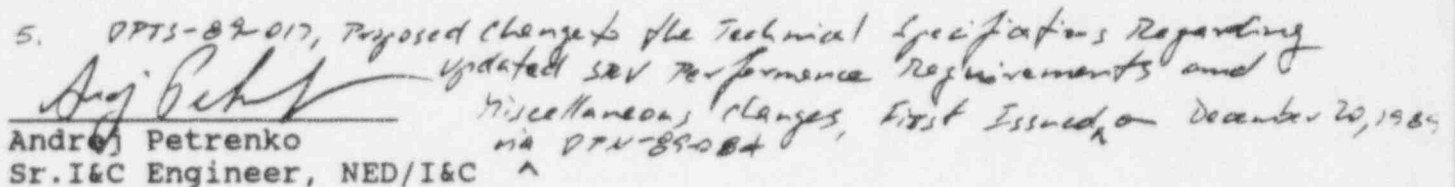 5. PPTS-89-017, Proposed Change to the Technical Specifications Regarding
Updated SRV Performance Requirements and
Miscellaneous Changes, First Issued on December 20, 1989
via
Andrej Petrenko
Sr.I&C Engineer, NED/I&C